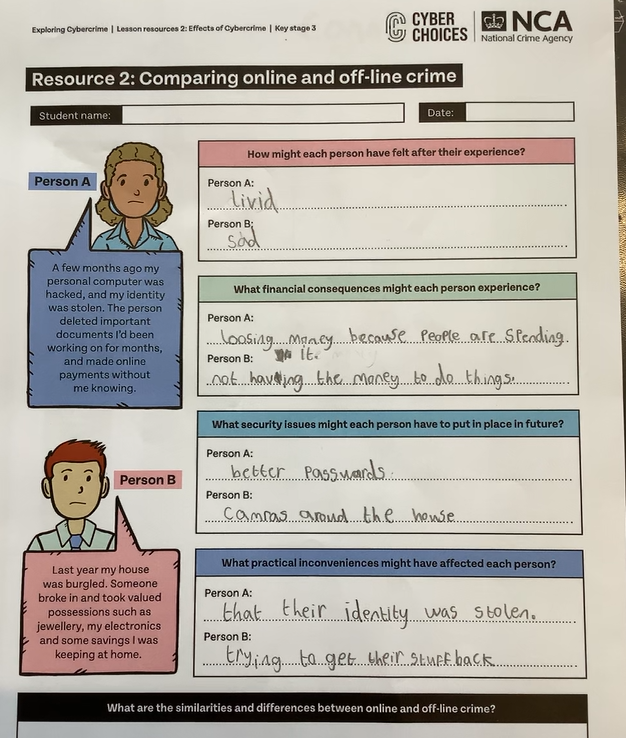 Exploring Cybercrime | Lesson resources 2: Effects of Cybercrime | Key stage 3
CYBER
CHOICES
NCA
National Crime Agency
Resource 2: Comparing online and off-line crime
Student name:
Date:
Person A
A few months ago my
personal computer was
hacked, and my identity
was stolen. The person
deleted important
documents I'd been
working on for months,
and made online
payments without
me knowing.
How might each person have felt after their experience?
Person A:
livid
Person B:
sad
What financial consequences might each person experience?
Person A:
loosing money because people are spending
it.
Person B:
not having the money to do things.
What security issues might each person have to put in place in future?
Person A:
better passwards
Person B:
camras aroud the house
Person B
Last year my house
was burgled. Someone
broke in and took valued
possessions such as
jewellery, my electronics
and some savings I was
keeping at home.
What practical inconveniences might have affected each person?
Person A:
that their identity was stolen.
Person B:
trying to get their stuff back
What are the similarities and differences between online and off-line crime?